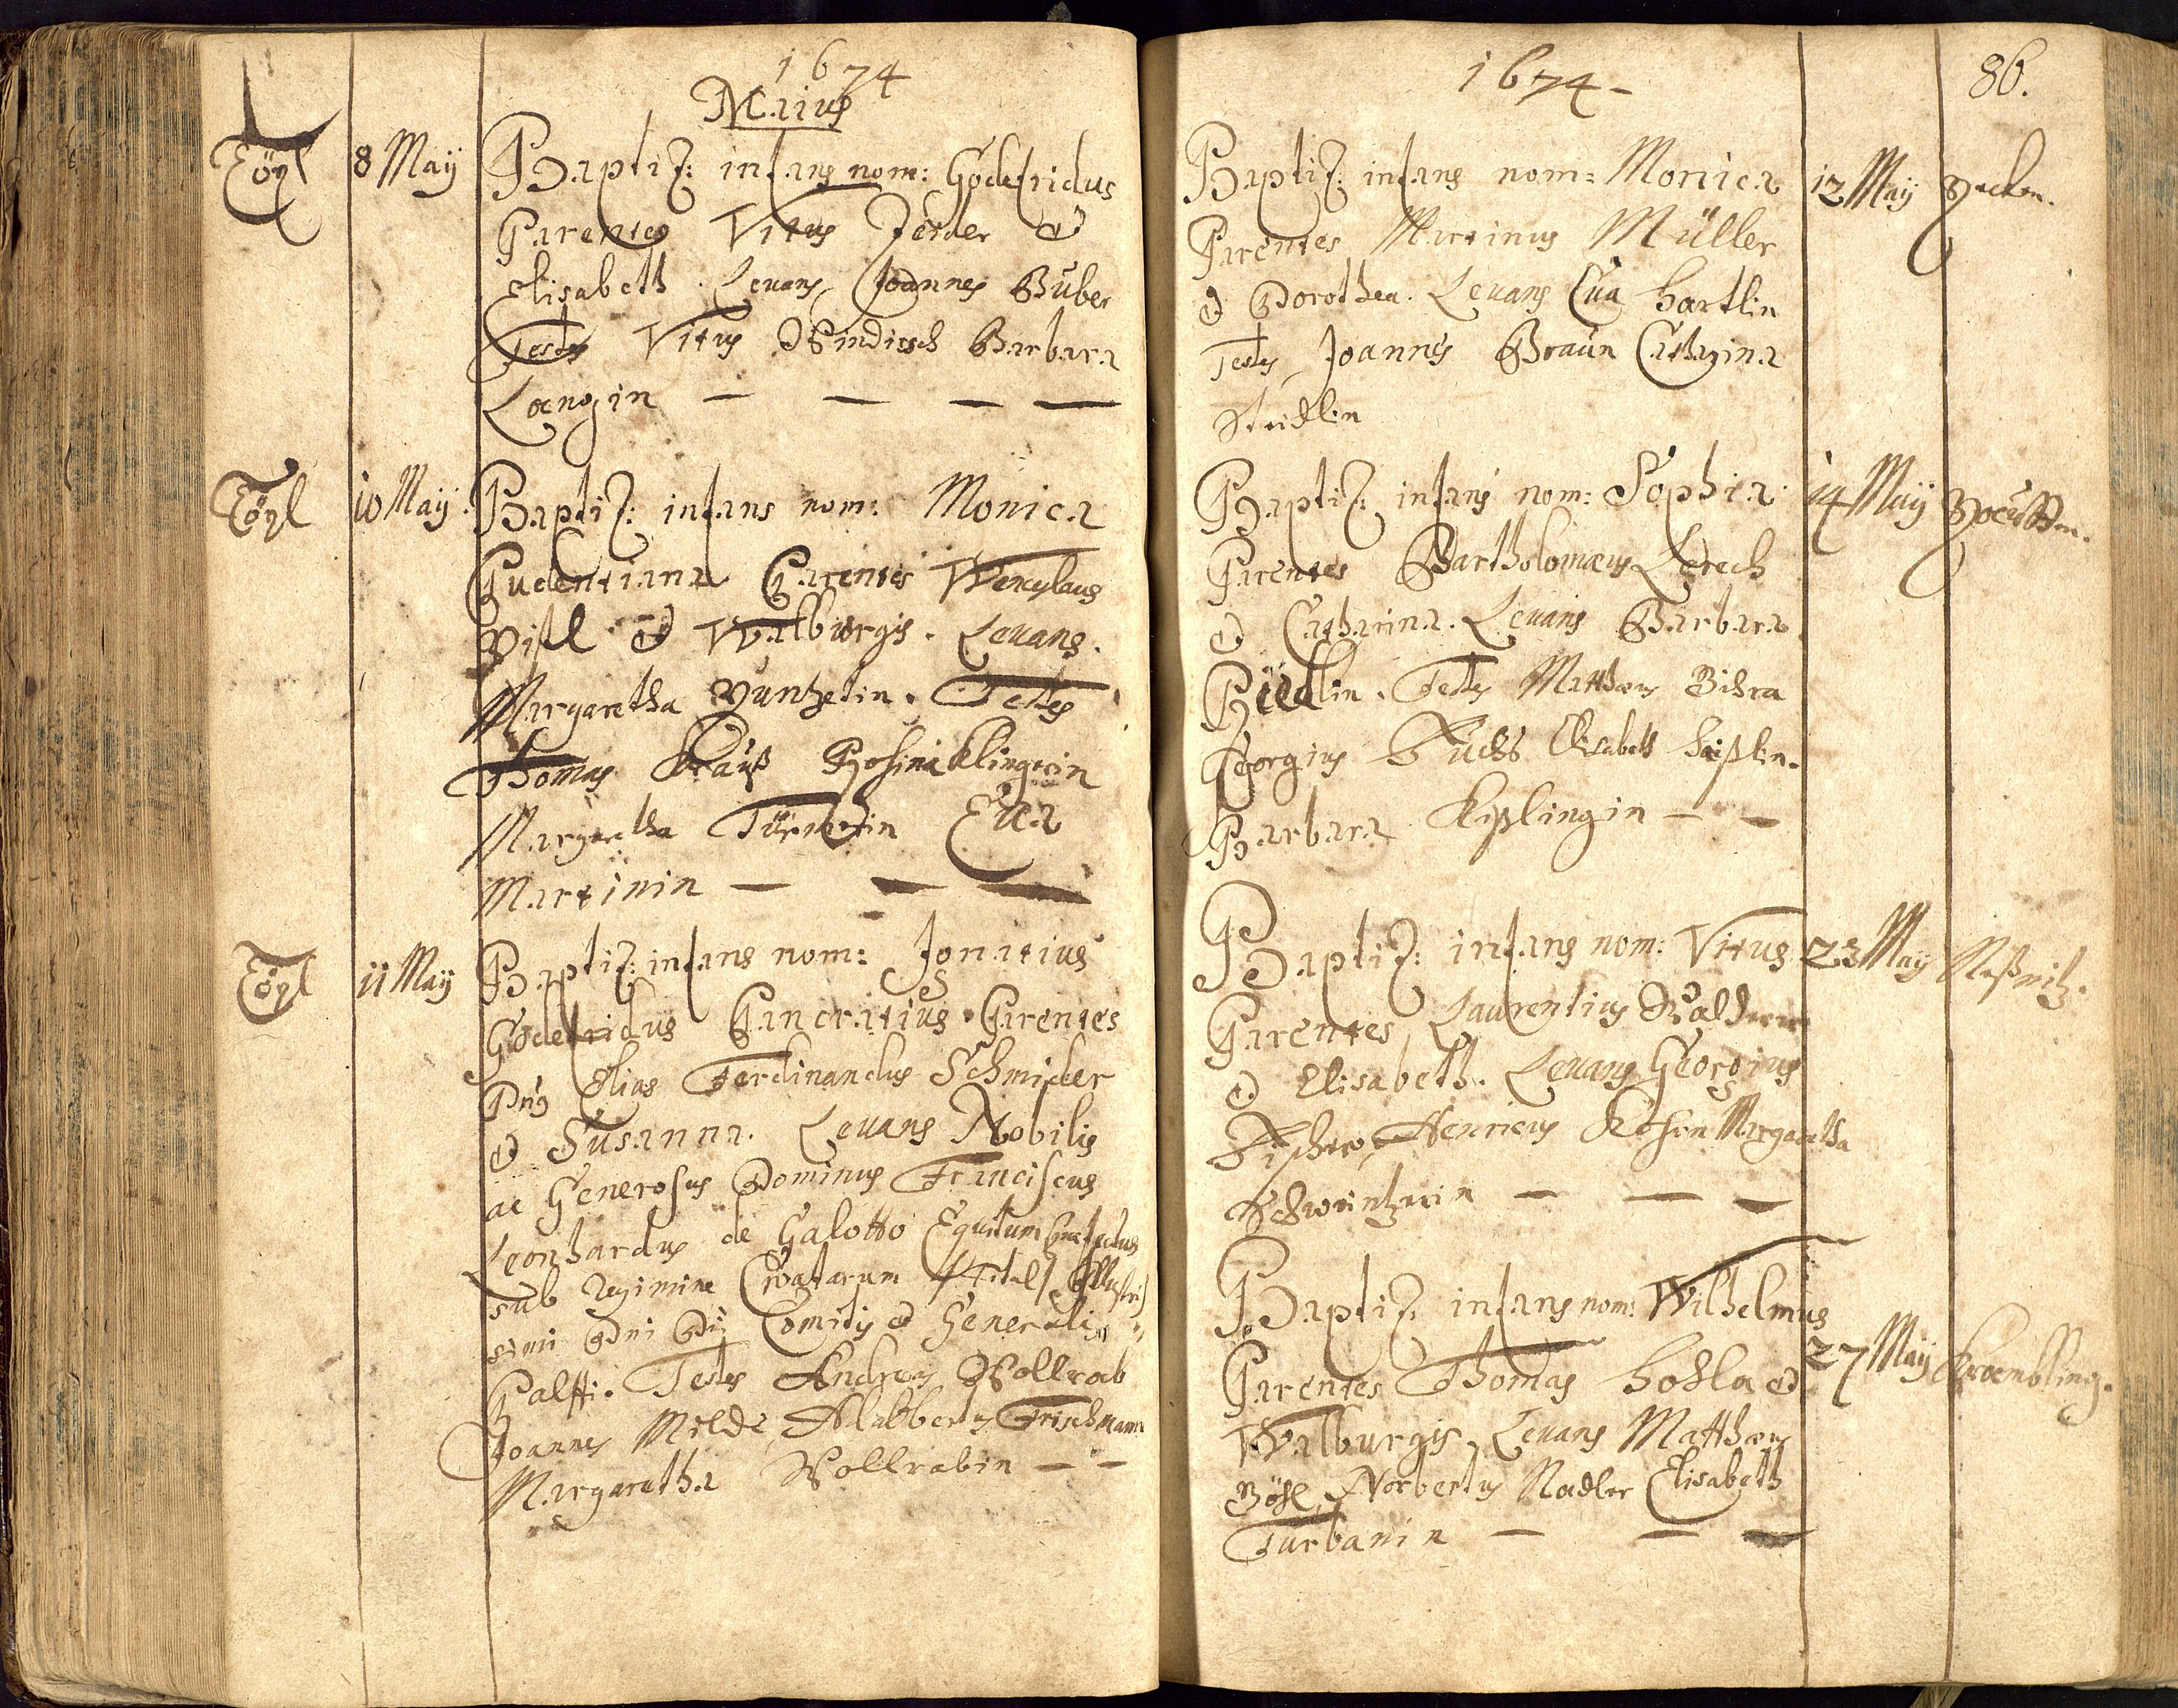 1674
Maius
Töpl
8 May
Baptiz: infans nom: Godefridus
Parentes Vitus Feiler et
Elisabeth. Levans Joannes Buber
Testes Vitus Windisch Barbara
Langin
Töpl
10 May.
Baptiz: infans nom: Monica
Pudentiana Parentes Wenceslaus
et Walburgis. Levans.
Margaretha Testes
Thomas Krauß Rosina Klingerin
Margaretha Eva
Martinin
Töpl
11 May
Baptiz: infans nom: Ignatius
Godefridus Pancratius. Parentes
Dnus Elias Ferdinandus Schmider
et Susanna. Levans Nobilis
ac Generosus Dominus Franciscus
Leonhardus de Galotto Equitum Praefectus
sub regimine Croatarum /Titel/ Illustris
simi Dni Dni Comitis et Generalis
Palffi. Testes Andreas Wollrab
Joannes Milde, Adalbertus Frischmann
Margaretha Wollrabin
1674
86.
Baptiz: infans nom: Monica
12 May
Parentes Martinus Müller
et Dorothea. Levans Eva Hartlin
Testes Joannes Braun Catharina
Baptiz: infans nom: Sophia
14 May
Parentes Bartholomæus Lerech
et Catharina. Levans Barbara
Testes Matthæus
Georgius Fuchs Elisabeth
Barbara Kißlingin
Baptiz: infans nom: Vitus
23 May
Parentes Laurentius
et Elisabeth. Levans Georgius
Fischer, Henricus Margaretha
Baptiz: infans nom: Wilhelmus
27 May
Parentes Thomas et
Walburgis, Levans Matthæus
Norbertus Nadler Elisabeth
Turbanin